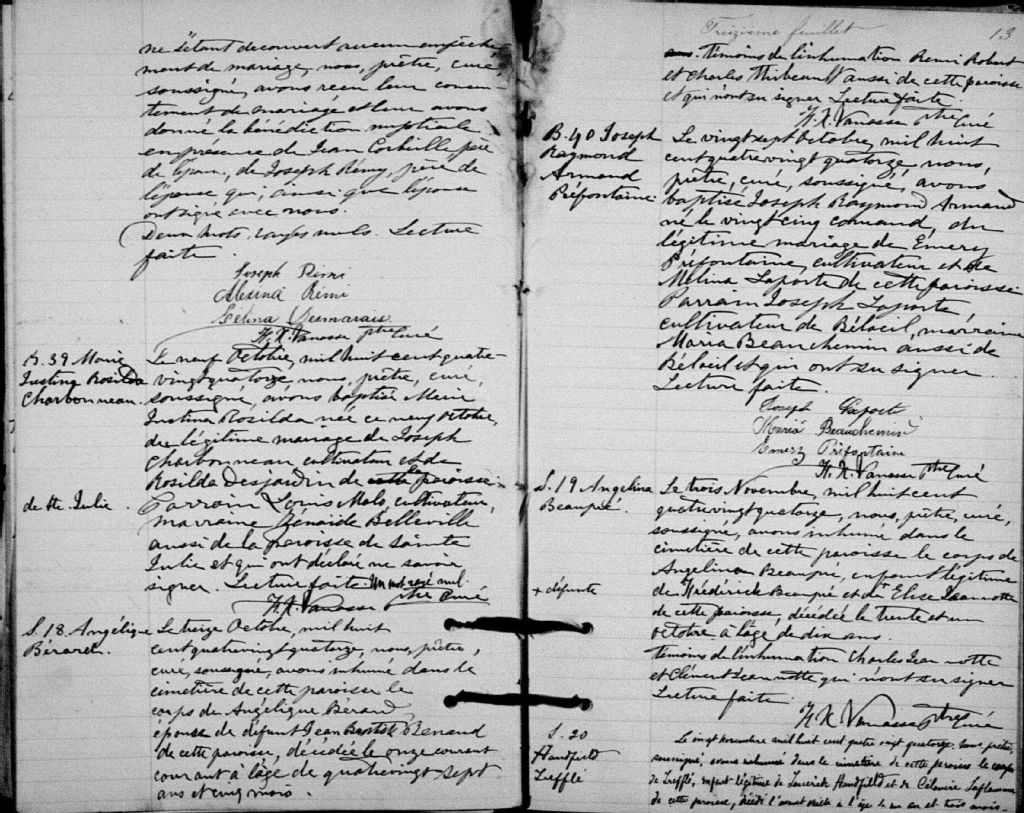 ne s'étant decouvert aucun empêche-
ment de mariage, nous, prêtre, curé,
soussigné, avons reçu leur consen-
tement de mariage et leur avons
donné la bénédiction nuptiale
en présence de Jean Corbeille père
de l'époux, de Joseph Rémy, père de
l'épouse qui, ainsi que l'épouse
ont signé avec nous.
Deux mots rayés nuls. Lecture
faite.
Joseph Rémi
Alexina Rémi
Celina Desmarais
H. X. Vanasse ptre Curé
B. 39 Marie
Justina Rosilda
Charbonneau.
Le neuf Octobre, mil huit cent quatre-
vingt quatorze, nous, prêtre, curé,
soussigné, avons baptisé Marie
Justina Rosilda née ce neuf octobre,
du légitime mariage de Joseph
Charbonneau cultivateur et de
Rosilda Desjardin de cette paroisse.
de Ste. Julie.
Parrain Louis Malo cultivateur,
marraine Zénaïde Belleville
aussi de la paroisse de Sainte
Julie et qui ont déclaré ne savoir
signer. Lecture faite. Un mot rayé nul.
H. X. Vanasse ptre Curé
S. 18. Angélique
Bérard.
Le treize Octobre, mil huit
cent quatrevingt quatorze, nous, prêtre,
curé, soussigné, avons inhumé dans le
cimetière de cette paroisse le
corps de Angélique Berard,
épouse de défunt Jean Baptiste Benard
de cette paroisse, décédée le onze courant
courant à l'âge de quatrevingt sept
ans et cinq mois.
Treizième feuillet
13
ans. Témoins de l'inhumation Remi Robert
et Charles Thibeault aussi de cette paroisse
et qui n'ont su signer Lecture faite.
H. X. Vanasse ptre Curé
B. 40 Joseph
Raymond
Armand
Préfontaine
Le vingt sept Octobre, mil huit
cent quatre vingt quatorze, nous,
prêtre, curé, soussigné, avons
baptisé Joseph Raymond Armand
né le vingt cinq courand, du
légitime mariage de Émery
Préfontaine, cultivateur et de
Mélina Laporte de cette paroisse
Parrain Joseph Laporte
cultivateur de Bélœil, marraine
Maria Beauchemin aussi de
Bélœil et qui ont su signer.
Lecture faite.
Joseph Laporte
Maria Beauchemin
Emery Préfontaine
H. X. Vanasse ptre Curé
S. 19 Angelina
Beaupré.
Le trois Novembre, mil huit cent
quatrevingt quatorze, nous, prêtre, curé,
soussigné, avons inhumé dans le
cimetière de cette paroisse le corps de
Angelina Beaupré, enfant légitime
+ défunte
de Frédérick Beaupré et de + Elise Jeannotte
de cette paroisse, décédée le trente et un
octobre à l'âge de dix ans.
Témoins de l'inhumation Charles Jeannotte
et Clément Jeannotte qui n'ont su signer
Lecture faite.
H. X. Vanasse ptre Curé
S. 20
Handfield
Trefflé
Le vingt novembre mil huit cent quatre vingt quatorze, nous prêtre,
soussigné, avons inhumé dans le cimetière de cette paroisse le corps
de Trefflé, enfant légitime de Handfield et de Laflamme
de cette paroisse, décédé l'avant veille à l'âge de un an et trois mois.